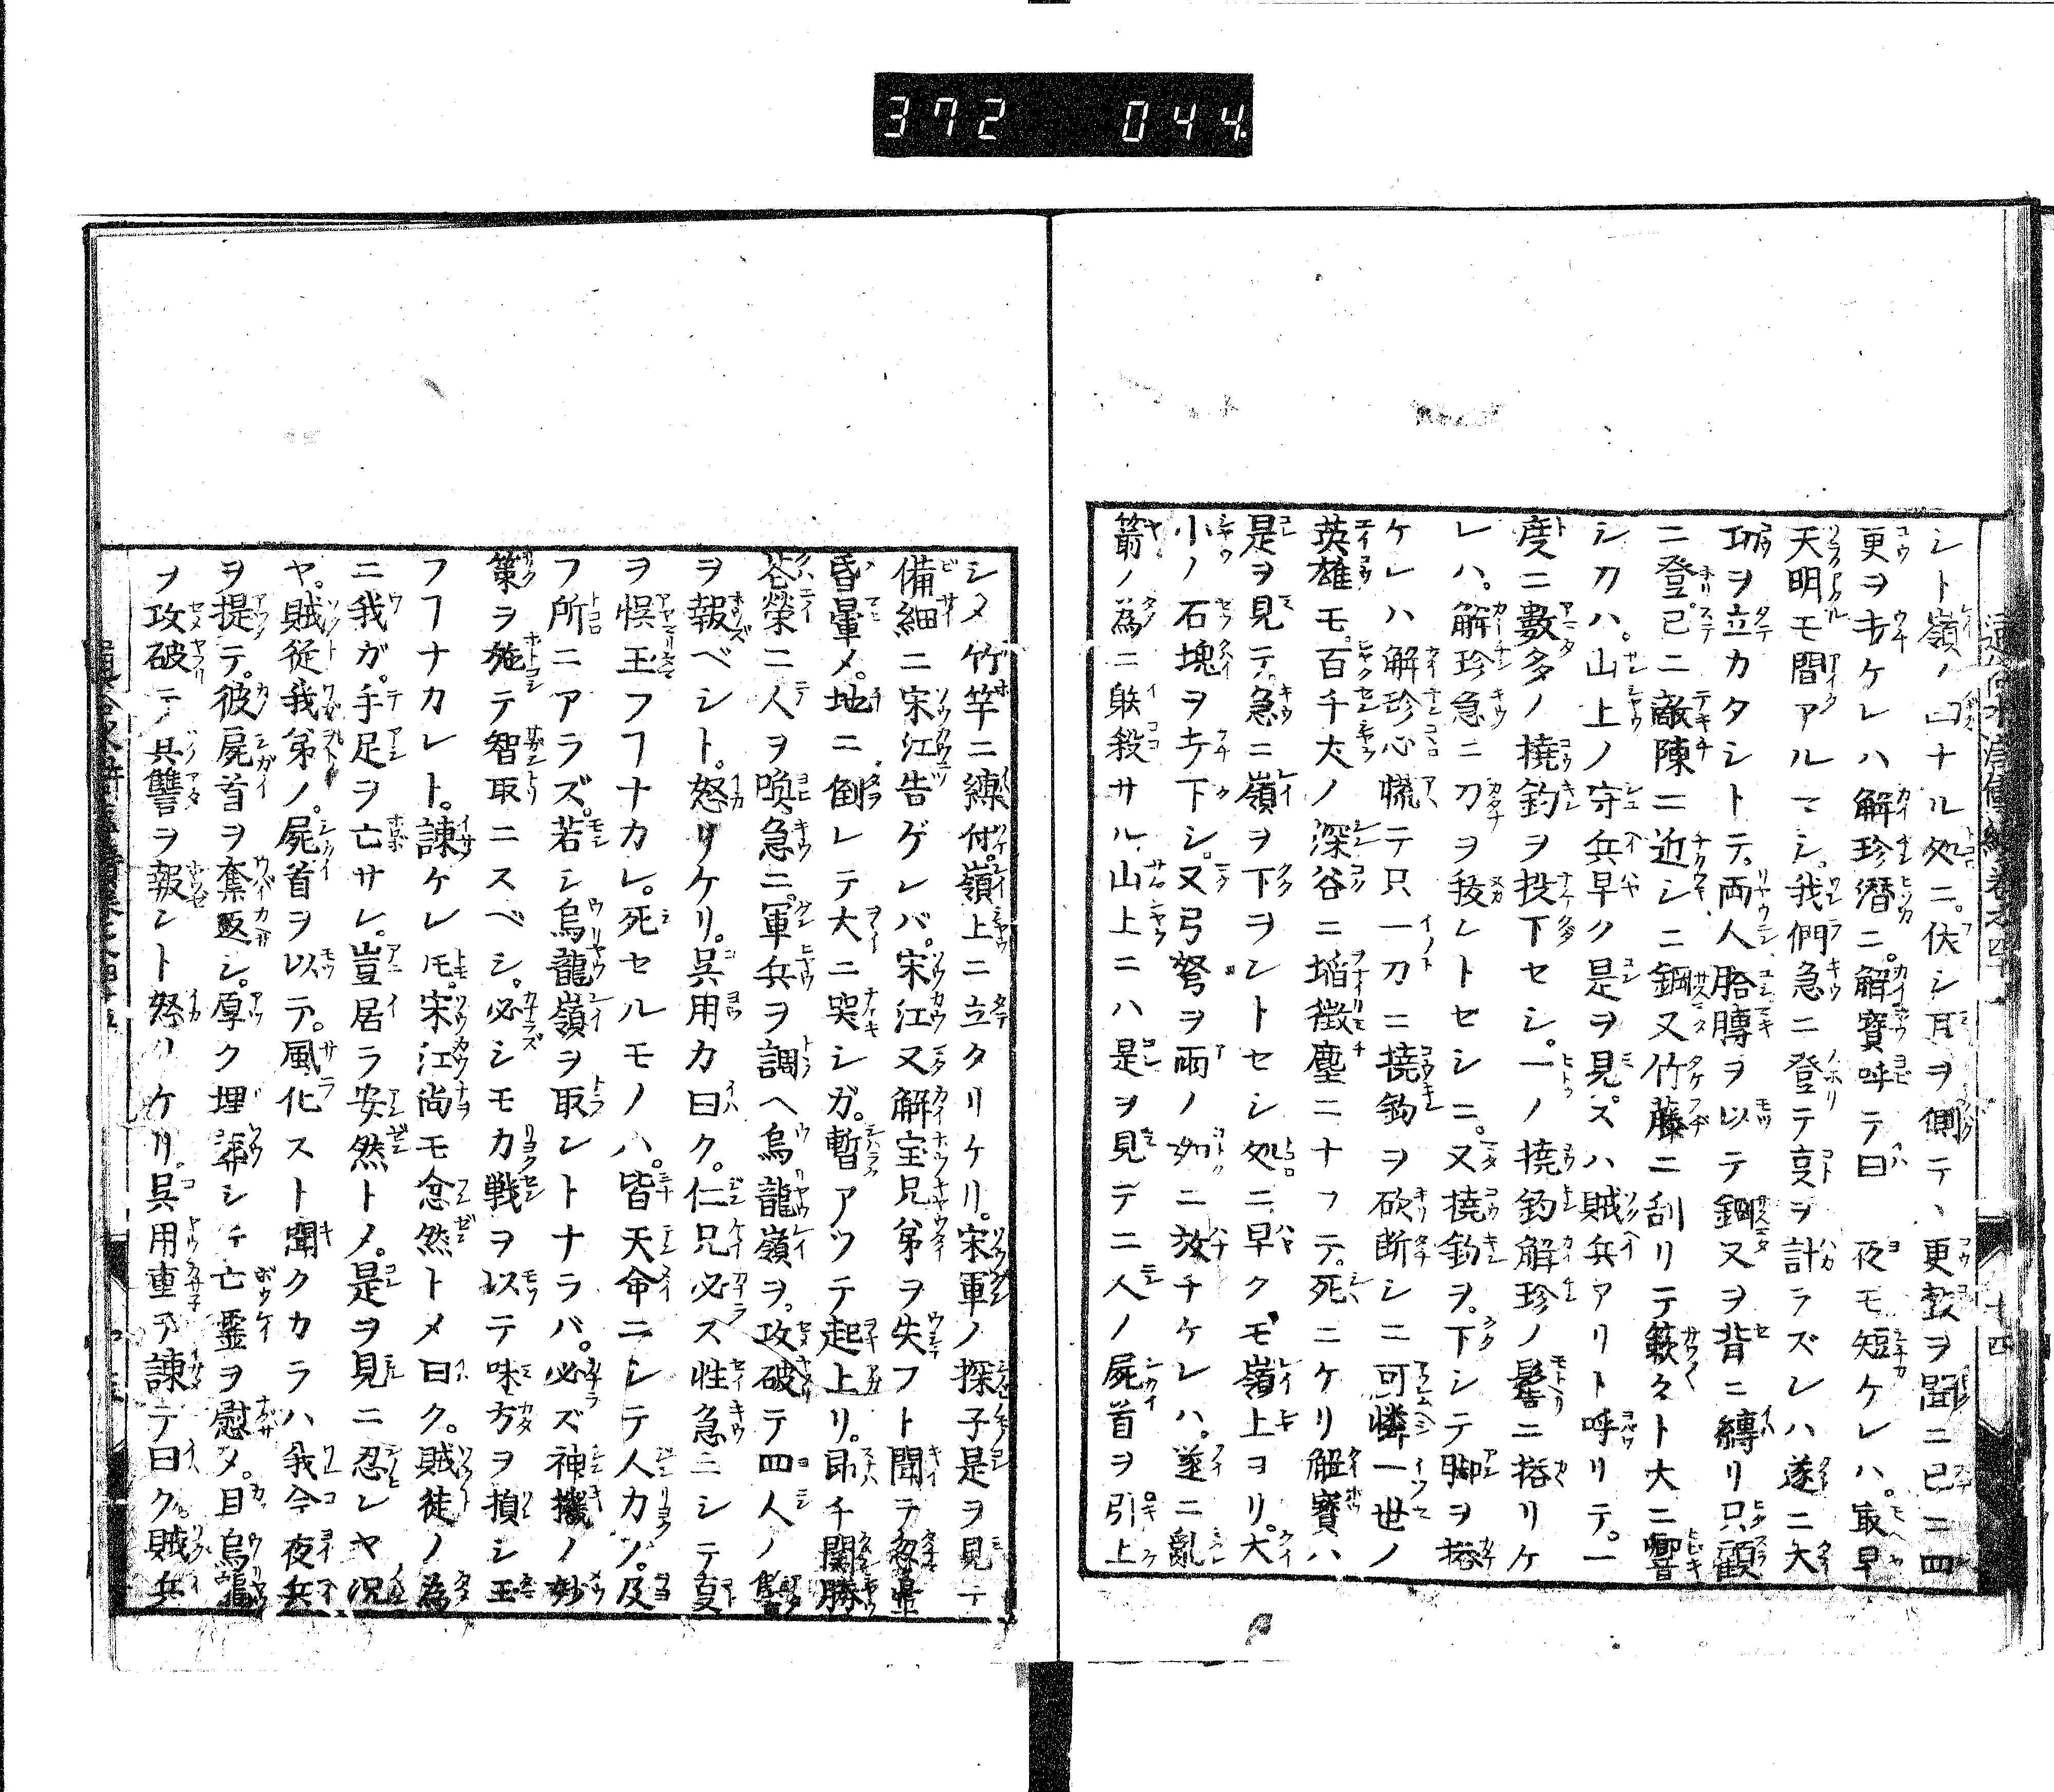 372 044
シト嶺ノ凹ナル処ニ。伏シ耳ヲ側テ、更鼓ヲ聞ニ已ニ四
更ヲ打ケレハ解珍潜ニ。解寶呼テ曰ハ夜モ短ケレハ。最早
天明モ間アルマシ。我們急ニ登テ支ヲ計ラズレハ遂ニ大
功ヲ立カタシトテ。両人胳膊ヲ以テ鋼叉ヲ背ニ縛リ只顧
ニ登。已ニ敵陳ニ近シニ鋼叉竹藤ニ刮リテ簌々ト大ニ響
シカハ。山上ノ守兵早ク是ヲ見ス八賊兵アリト呼リテ。一
度ニ數多ノ撓鈎ヲ投下セシ。一ノ撓鈎解珍ノ髻ニ搭リケ
レハ。解珍急ニ刀ヲ抜レトセシニ。又撓鈎ヲ。下シテ脚ヲ搭
ケレハ解珍心慌テ只一刀ニ撓鈎ヲ砍断シニ可憐一世ノ
英雄モ。百千丈ノ深谷ニ堕微塵ニナツテ。死ニケリ解寶ハ
是ヲ見テ。急ニ嶺ヲ下ヲントセシ処ニ早クモ嶺上ヨリ。大
小ノ石塊ヲ打下シ。又弓弩ヲ雨ノ如ニ放チケレハ。遂ニ亂
箭ノ為ニ躲殺サル山上ニハ是ヲ見テ二人ノ屍首ヲ引上
シメ竹竿ニ縛付。嶺上ニ立タリケリ。宋軍ノ探子是ヲ見テ
備細ニ宋江告ゲレバ。宋江又解宝兄弟ヲ失フト聞テ忽
昏暈メ。地ニ倒レテ大ニ哭シガ。暫アツテ起上リ。即チ関勝
花榮ニ人ヲ喚。急ニ。軍兵ヲ調ヘ烏龍嶺ヲ。攻破テ四人ノ讐
ヲ報ベシト。怒リケリ。呉用カ曰ク。仁兄必ス性急ニシテ支
ヲ悞玉フフナカレ。死セルモノハ。皆天命ニシテ人カノ。及
フ所ニアラズ。若シ烏龍嶺ヲ取ントナラバ。必ズ神機ノ妙
策ヲ施テ智取ニスベシ。必シモカ戦ヲ以テ味方ヲ損シ玉
フフナカレト。諫ケレ𪜈。宋江尚モ忿然トメ曰ク。賊徒ノ為
ニ我ガ。手足ヲ亡サレ。豈居ラ安然トメ。是ヲ見ニ忍レヤ况
ヤ。賊徒我弟ノ。屍首ヲ以テ。風化スト聞クカラハ我今夜兵
ヲ提テ。彼屍首ヲ奪返シ。厚ク埋葬シテ亡霊ヲ慰メ。且烏龍
ヲ攻破テ其讐ヲ報レト怒リケリ。呉用重テ諫テ曰ク賊兵